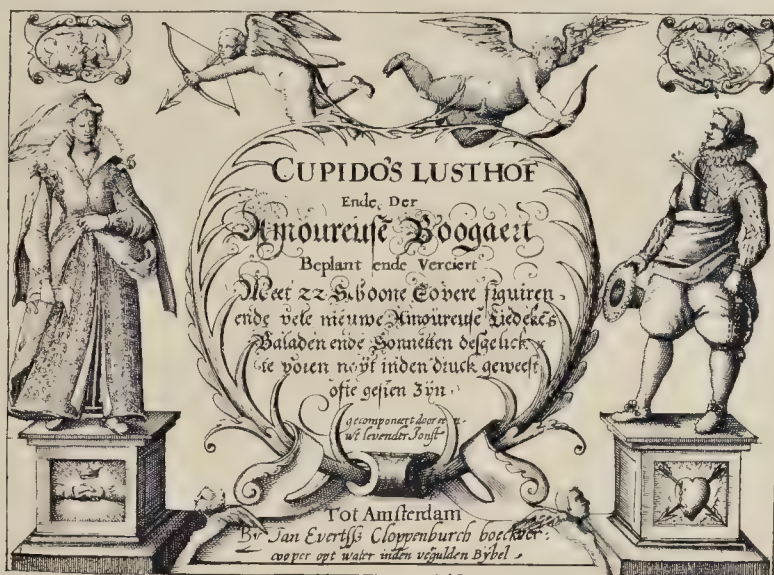 CUPIDO'S LUSTHOF
Ende Der
Amoureuse Boogaert
Beplant ende Verciert
Meet 22 Schoone Copere figuiren
ende vele nieuwe Amoureuse Liedekes
Baladen ende Sonnetten desgelick
te voren noÿt inden druck geweest
ofte gesien zÿn.
gecomponeert door
levender Jonst
Tot Amsterdam
By Jan Evertsz Cloppenburch boeckver:
cooper opt water inden vergulden Bÿbel.